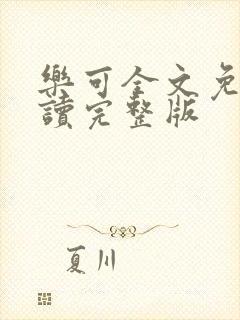 樂可全文免
讀完整版
夏川